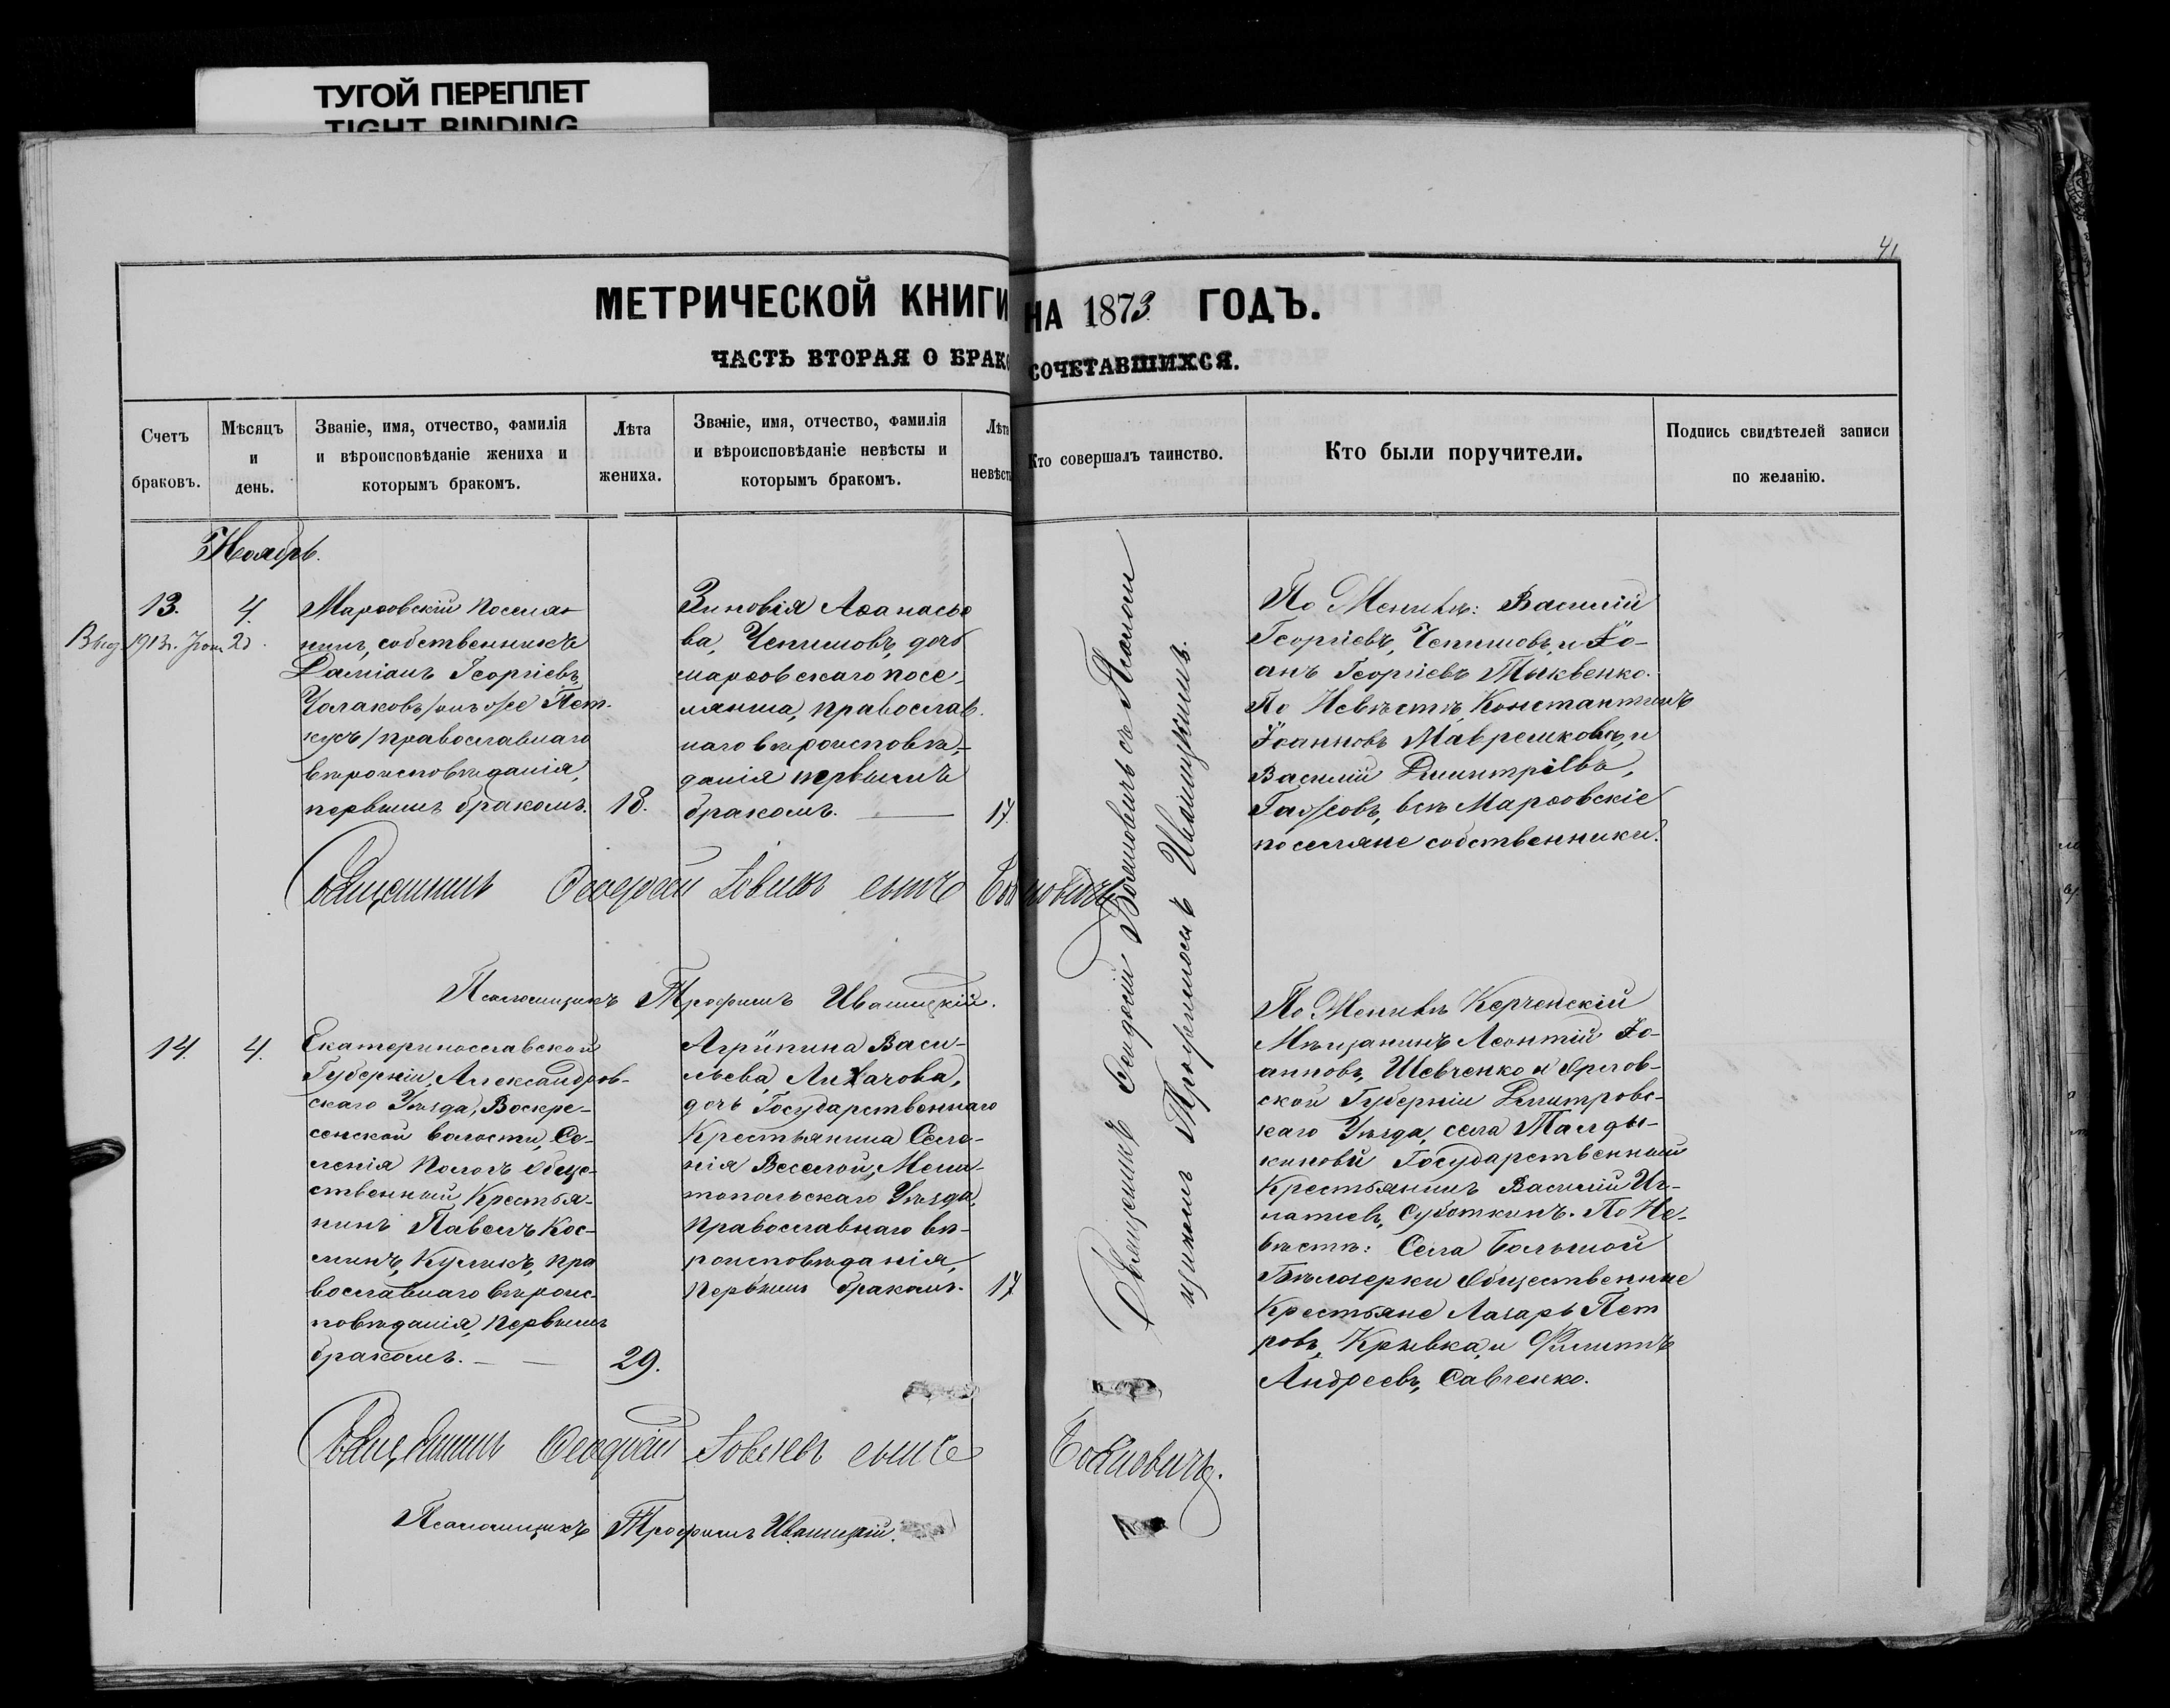 ТУГОЙ ПЕРЕПЛЕТ
TIGHT BINDING
41
МЕТРИЧЕСКОЙ КНИГИ НА 1873 ГОДЪ.
ЧАСТЬ ВТОРАЯ О БРАКОСОЧЕТАВШИХСЯ.
Счетъ браковъ.
Мѣсяцъ и день.
Званіе, имя, отчество, фамилія и вѣроисповѣданіе жениха и которымъ бракомъ.
Лѣта жениха.
Званіе, имя, отчество, фамилія и вѣроисповѣданіе невѣсты и которымъ бракомъ.
Лѣта невѣсты
Кто совершалъ таинство.
Кто были поручители.
Подпись свидѣтелей записи по желанію.
Ноябрь.
13.
4.
1913г.
Марѳовскій поселя-
нинъ, собственникъ
Даміанъ Георгіевъ,
Чолаковъ /онъ же Пет-
кусъ/ православнаго
вѣроисповѣданія,
первымъ бракомъ.
18.
Зиновія Аѳанасье
ва, Чепишовъ, дочь
марѳовскаго посе-
лянина, православ-
наго вѣроисповѣ-
данія первымъ
бракомъ.
17.
Священникъ Ѳеодосій Войновичъ съ Псалом
щикомъ Трофимомъ Ивашуцкимъ.
По Женихѣ: Василій
Георгіевъ, Чепишовъ, и Іо-
анъ Георгіевъ Тыквенко.
По Невѣстѣ, Константинъ
Іоанновъ Маврешковъ, и
Василій Димитріевъ,
Гаджовъ, всѣ Марѳовскіе
поселяне собственники.
Священникъ Ѳеодосій Іовлевъ сынъ Войновичъ
Псаломщикъ Трофимъ Ивашуцкій.
14.
4.
Екатеринославской
Губерніи, Александров-
скаго Уѣзда, Воскре-
сенской волости, Се-
ленія Пологъ обще-
ственный Крестья-
нинъ Павелъ Кос-
минъ, Куликъ, пра
вославнаго вѣроис-
повѣданія, первымъ
бракомъ.
29.
Агрипина Васи-
льева Лихачова,
дочь Государственнаго
Крестьянина Село-
нія Веселой, Мели-
топольскаго Уѣзда,
православнаго вѣ-
роисповѣданія,
первымъ бракомъ.
17
По Женихѣ Керченскій
Мѣщанинъ Леонтій Іо-
анновъ, Шевченко и Орлов-
ской Губерніи Дмитровс-
каго Уѣзда, села Талды-
киной Государственный
Крестьянинъ Василій Иг-
натіевъ, Суботкинъ. По Не-
вѣстѣ: Села Большой
Бѣлозерки Общественные
Крестьяне Лазарь Пет
ровъ, Кривка, и Филипъ
Андреевъ, Савченко.
Священникъ Ѳеодосій Іовлевъ сынъ Войновичъ.
Псаломщикъ Трофимъ Ивашуцкій.